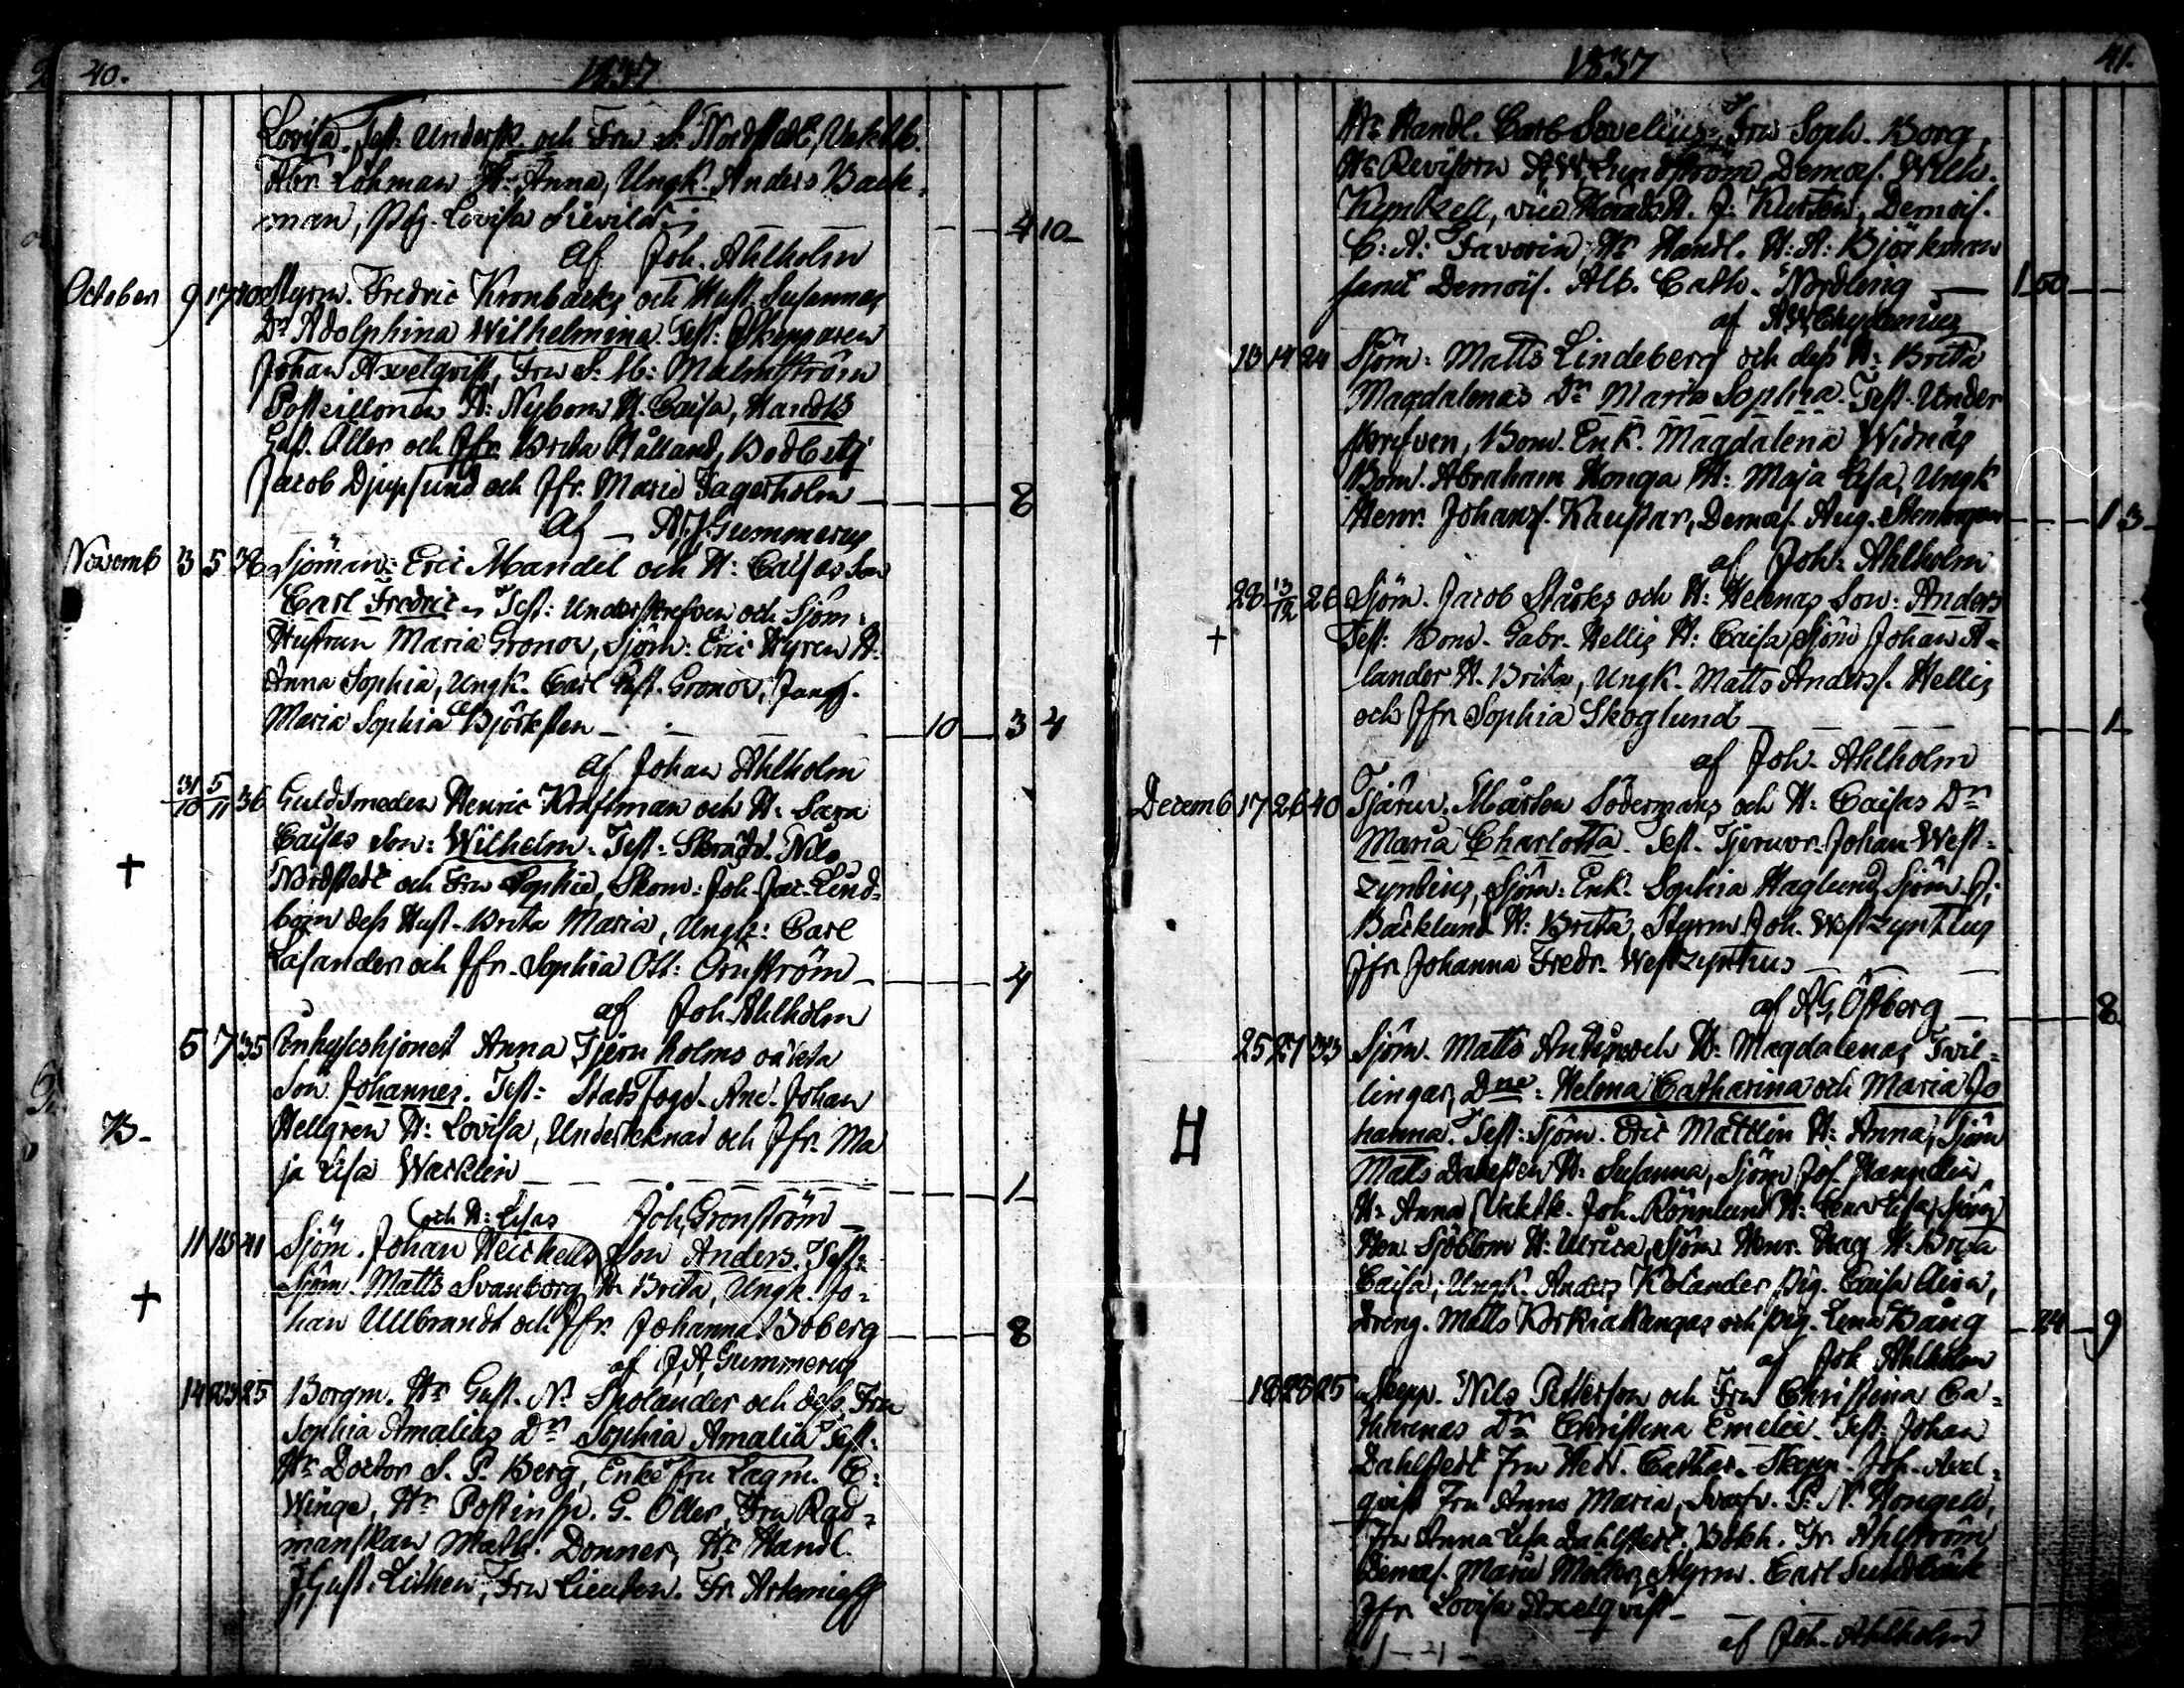 40. 1837
Lovisa. Test: Underskr. och Fru S. Nordstedt, Vaktk.
Abr. Löhman H: Anna, Ungk. Anders Back-
man, Pig. Lovisa 4 10
af Joh. Ahlholm
October 9 17 40 Styrm. Fredric Kronbäcks och Hust. Susannas
Dr Adolphina Wilhelmina. Test: Skepparen
Johan Axelqvist, Fru S: M: Malmström
Postillonen A: Nybom H. Caisa, Handls
Gust. Öller och Jfr. Brita Ståland, Bodbetj
Jacob Djupsund och Jfr. Maria Fagerholm 8
Af A. J. Gummerus
Novemb 3 5 36 Sjöman: Eric Mandel och H: Caisas Son
Carl Fredric. Test: Underskrefven och Sjöm:
Hustrun Maria Gronov, Sjöm: Eric Hyren H:
Anna Sophia, Ungk. Carl Gust. Gronov, Jungf.
Maria Sophia Björksten 10 3 4
af Johan Ahlholm
31/10 5/11 36 Guldsmeden Henric Kraftman och H: Sara
Caisas Son: Wilhelm. Test: Skrädd. Nils
Nordstedt och Fru Sophia, Skom: Joh. Jac. Lind-
bom dess Hust. Brita Maria, Ungk: Carl
Lasander och Jfr. Sophia Ott: Örnström 4
af Joh. Ahlholm
5 7 35 Enhyseshjonet Anna Tjernholms oäkta
Son Johannes. Test: Stadsfogd. And. Johan
B. Hellgren H: Lovisa, Undertecknad och Jfr. Ma
ja Lisa Wacklin 1
och H: Lisas Joh. Gronström
11 15 41 Sjöm. Johan Heickells Son Anders. Test:
Sjöm. Matts Svanborg H. Brita, Ungk. Jo-
han Ullbrandt och Jfr. Johanna Boberg 8
af J. A. Gummerus
14 23 25 Borgm. Hr Gust. N. Spolander och dess Fru
Sophia Amalias Dr Sophia Amalia Test:
Hr Doctor S. P. Berg, Enkefru Lagm. C:
Winge, Hr Postinsp. G. Öller, Fru Råd-
manskan Math. Donner, Hr Handl.
J. Gust. Lithen, Fru Lieuten. Fr. Artemieff
1837 41.
Hr Handl. Carl Sovelius, Fru Soph. Borg,
Hr Revisorn A. W. Lundström Demois. Wilh.
Kynkzell, vice Häradsh. J: Kurten, Demois.
C: A: Favorin, Hr Handl. H: A: Björkman
samt Demois. Alb. Cath. Nordling 1 50
af A. W. Chydenius
13 14 24 Sjöm: Matts Lindeberg och dess H: Brita
Magdalenas Dr Maria Sophia. Test. Under
skrefven, Bond. Enk. Magdalena Widnäs
Bond. Abraham Honga H: Maja Lisa, Ungk
Henr. Johans. Kaustar, Demois. Aug. Stenhagen 1 3
af Joh: Ahlholm
28 13/12 26 Sjöm. Jacob Starks och H: Helenas Son: Anders
Test: Bond. Gabr. Hellis H: Caisa, Sjöm Johan A-
lander H. Brita, Ungk. Matts Anderss. Hellis
och Jfr Sophia Skoglund 1
af Joh. Ahlholm
Decemb 17 26 40 Tjäruv. Mårten Södermans och H: Caisas Dr
Maria Charlotta. Test. Tjeruvr. Johan West-
zynthius, Sjöm: Enk. Sophia Haglund, Sjöm. A:
Bäcklund H: Brita, Styrm Joh. Westzynthius
Jfr Johanna Fredr. Westzynthius
af A. G. Östberg 8
25 27 33 Sjöm. Matts och H: Magdalenas Tvil-
lingar, Dne: Helena Catharina och Maria Jo
hanna. Test: Sjöm. Eric Mattlin H: Anna, Sjöm
Matts H: Susanna, Sjöm Jos. Hannelin
H. Anna, Vaktk. Joh. Rönnlund H: Lena Lisa, Sjöm
Hen. Sjöblom H: Ulrica, Sjöm Henr. Hag H: Brita
Caisa, Ungk. Anders Kolander Pig. Caisa
Dreng. Matts Korkiakangas och Pig. Lena Bång 24 9
af Joh Ahlholm
18 28 25 Skepp. Nils Petterson och Fru Christina Ca-
tharinas Dr Christina Emelie. Test: Johan
Dahlstedt Fru Hed. Cathar. Skepp. Joh. Axel-
qvist Fru Anna Maria, Svarfv. P. N. Hongell,
Fru Anna Lisa Dahlstedt. Bokh. Fr. Ahlström
Demois. Maria Möller, Styrm. Carl Sundbäck
Jfr Lovisa Axelqvist
af Joh. Ahlholm